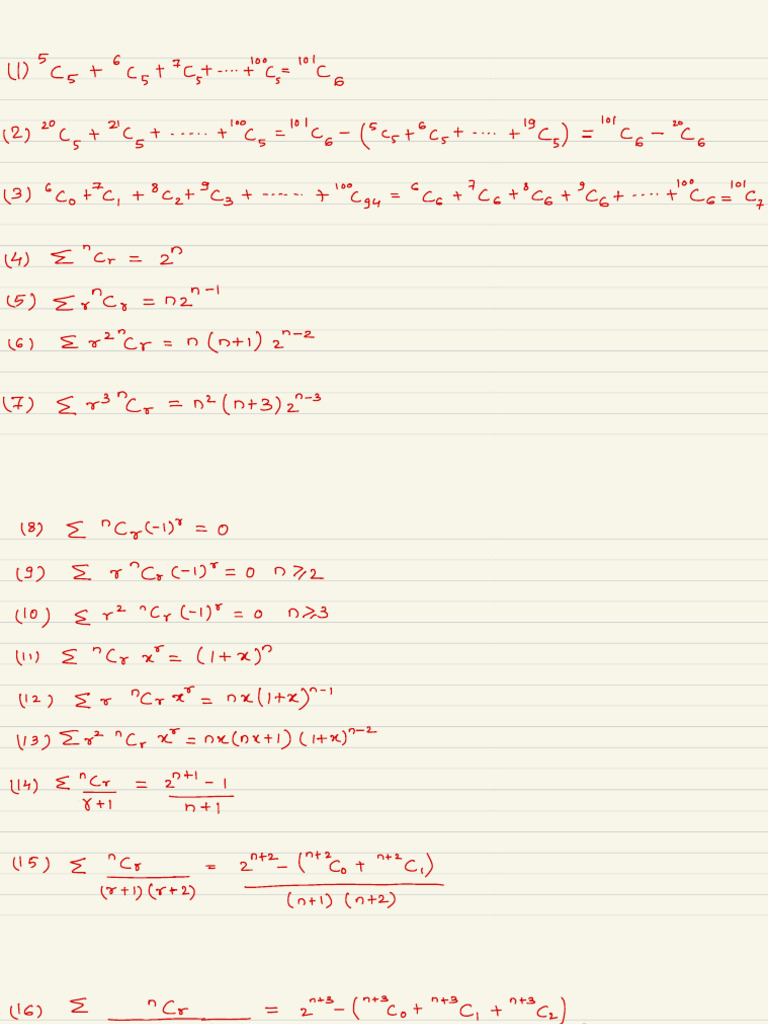 (1) ⁵C₅ + ⁶C₅ + ⁷C₅ + ···· + ¹⁰⁰C₅ = ¹⁰¹C₆
(2) ²⁰C₅ + ²¹C₅ + ····· + ¹⁰⁰C₅ = ¹⁰¹C₆ - (⁵C₅ + ⁶C₅ + ···· + ¹⁹C₅) = ¹⁰¹C₆ - ²⁰C₆
(3) ⁶C₀ + ⁷C₁ + ⁸C₂ + ⁹C₃ + ······ + ¹⁰⁰C₉₄ = ⁶C₆ + ⁷C₆ + ⁸C₆ + ⁹C₆ + ···· + ¹⁰⁰C₆ = ¹⁰¹C₇
(4) Σ ⁿCᵣ = 2ⁿ
(5) Σ r ⁿCᵣ = n2ⁿ⁻¹
(6) Σ r² ⁿCᵣ = n(n+1) 2ⁿ⁻²
(7) Σ r³ ⁿCᵣ = n²(n+3) 2ⁿ⁻³
(8) Σ ⁿCᵣ (-1)ʳ = 0
(9) Σ r ⁿCᵣ (-1)ʳ = 0 n ≥ 2
(10) Σ r² ⁿCᵣ (-1)ʳ = 0 n ≥ 3
(11) Σ ⁿCᵣ xʳ = (1+x)ⁿ
(12) Σ r ⁿCᵣ xʳ = nx(1+x)ⁿ⁻¹
(13) Σ r² ⁿCᵣ xʳ = nx(nx+1) (1+x)ⁿ⁻²
(14) Σ ⁿCᵣ/(r+1) = (2ⁿ⁺¹ - 1)/(n+1)
(15) Σ ⁿCᵣ/((r+1)(r+2)) = (2ⁿ⁺² - (ⁿ⁺²C₀ + ⁿ⁺²C₁))/((n+1)(n+2))
(16) Σ ⁿCᵣ = 2ⁿ⁺³ - (ⁿ⁺³C₀ + ⁿ⁺³C₁ + ⁿ⁺³C₂)